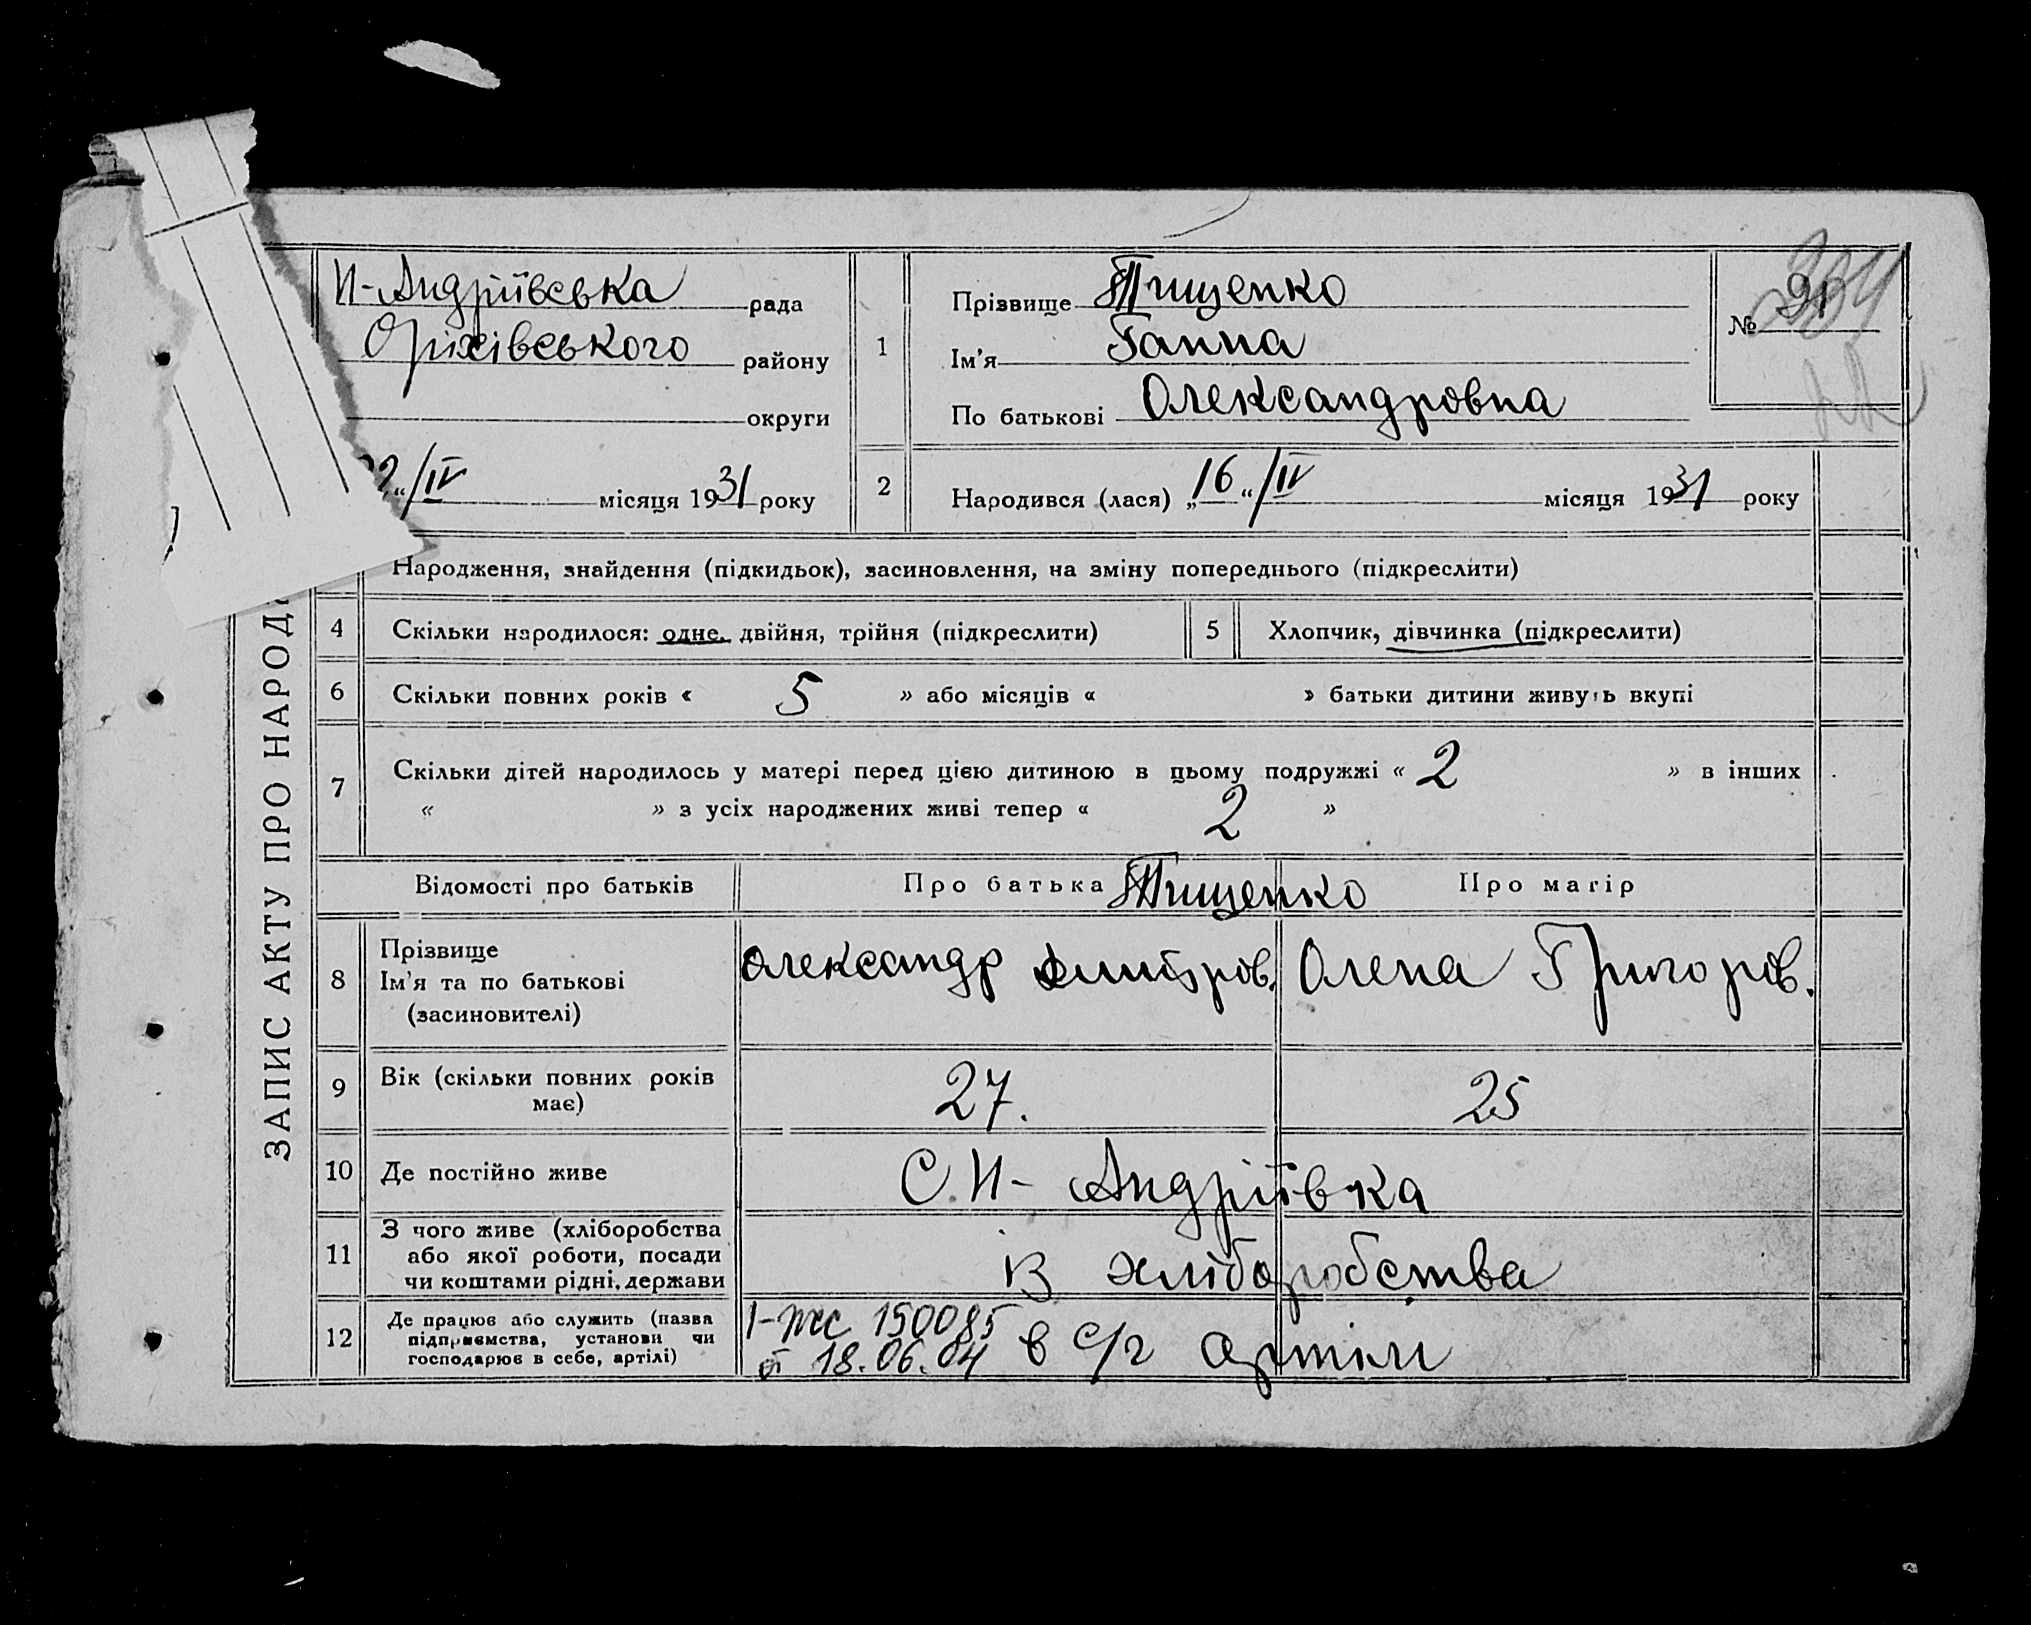 ЗАПИС АКТУ ПРО НАРОД
Н-Андріївська рада
Оріхівського району
округи
“/IV місяця 1931 року
1
Прізвище Тищенко
Ім’я Ганна
По батькові Олександровна
№ 91
2
Народився (лася) „16“/IV місяця 1931 року
Народження, знайдення (підкидьок), засиновлення, на зміну попереднього (підкреслити)
4 Скільки народилося: одне, двійня, трійня (підкреслити)
5 Хлопчик, дівчинка (підкреслити)
6 Скільки повних років « 5 » або місяців « » батьки дитини живуть вкупі
7 Скільки дітей народилось у матері перед цією дитиною в цьому подружжі « 2 » в інших
« » з усіх народжених живі тепер « 2 »
Відомості про батьків
Про батька
Тищенко
Про матір
8 Прізвище
Ім’я та по батькові
(засиновителі)
Олександр Дмитров.
Олена Григоров.
9 Вік (скільки повних років
має)
27.
25
10 Де постійно живе
С. Н-Андріївка
11 З чого живе (хліборобства
або якої роботи, посади
чи коштами рідні, держави
Із хліборобства
12 Де працює або служить (назва
підприємства, установи чи
господарює в себе, артілі)
I-ЖС 150085
от 18.06.04
в с/г артіли